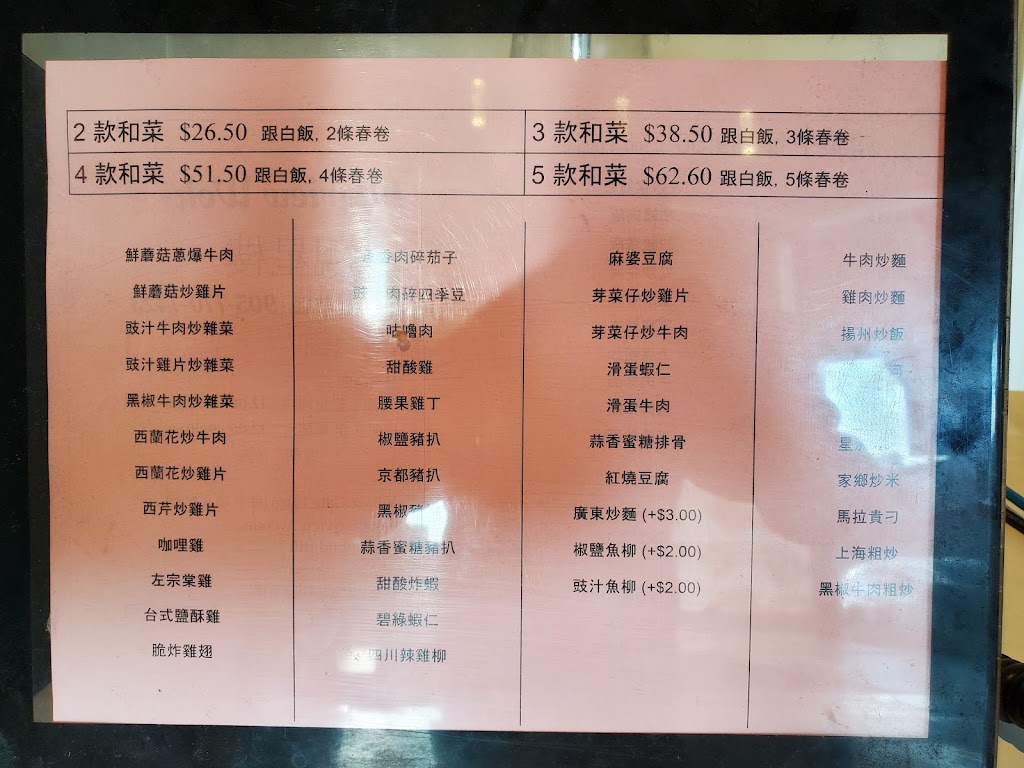 2 款和菜 $26.50 跟白飯, 2條春卷
3 款和菜 $38.50 跟白飯, 3條春卷
4 款和菜 $51.50 跟白飯, 4條春卷
5 款和菜 $62.60 跟白飯, 5條春卷
鮮蘑菇蔥爆牛肉
鮮蘑菇炒雞片
豉汁牛肉炒雜菜
豉汁雞片炒雜菜
黑椒牛肉炒雜菜
西蘭花炒牛肉
西蘭花炒雞片
西芹炒雞片
咖哩雞
左宗棠雞
台式鹽酥雞
脆炸雞翅
香肉碎茄子
肉碎四季豆
咕嚕肉
甜酸雞
腰果雞丁
椒鹽豬扒
京都豬扒
黑椒
蒜香蜜糖豬扒
甜酸炸蝦
碧綠蝦仁
四川辣雞柳
麻婆豆腐
芽菜仔炒雞片
芽菜仔炒牛肉
滑蛋蝦仁
滑蛋牛肉
蒜香蜜糖排骨
紅燒豆腐
廣東炒麵 (+$3.00)
椒鹽魚柳 (+$2.00)
豉汁魚柳 (+$2.00)
牛肉炒麵
雞肉炒麵
揚州炒飯
河
星
家鄉炒米
馬拉貴刁
上海粗炒
黑椒牛肉粗炒